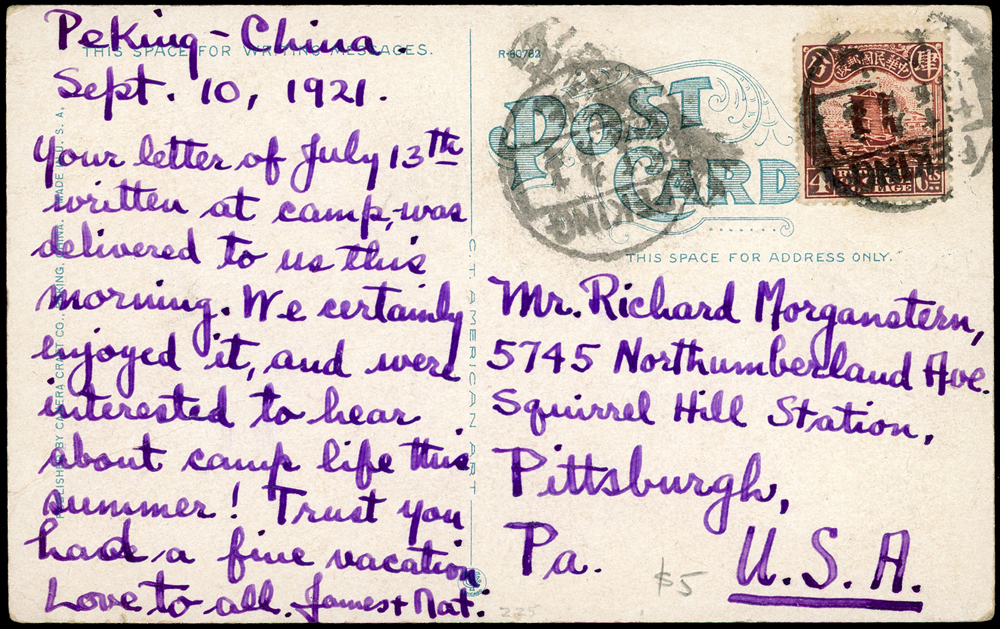 Peking - China.
THIS SPACE FOR WRITING MESSAGES.
Sept. 10, 1921.
Your letter of July 13th
written at camp, was
delivered to us this
morning. We certainly
enjoyed it, and were
interested to hear
about camp life this
summer! Trust you
had a fine vacation
Love to all. James + Nat.
PUBLISHED BY CAMERA CRAFT CO., PEKING, CHINA. MADE IN U.S.A.
C.T. AMERICAN ART
R-80782
POST CARD
中華民國郵政
分 肆
4 CTS
PEKING
PEKING
THIS SPACE FOR ADDRESS ONLY.
Mr. Richard Morganstern,
5745 Northumberland Ave.
Squirrel Hill Station,
Pittsburgh,
Pa. U.S.A.
$5
225